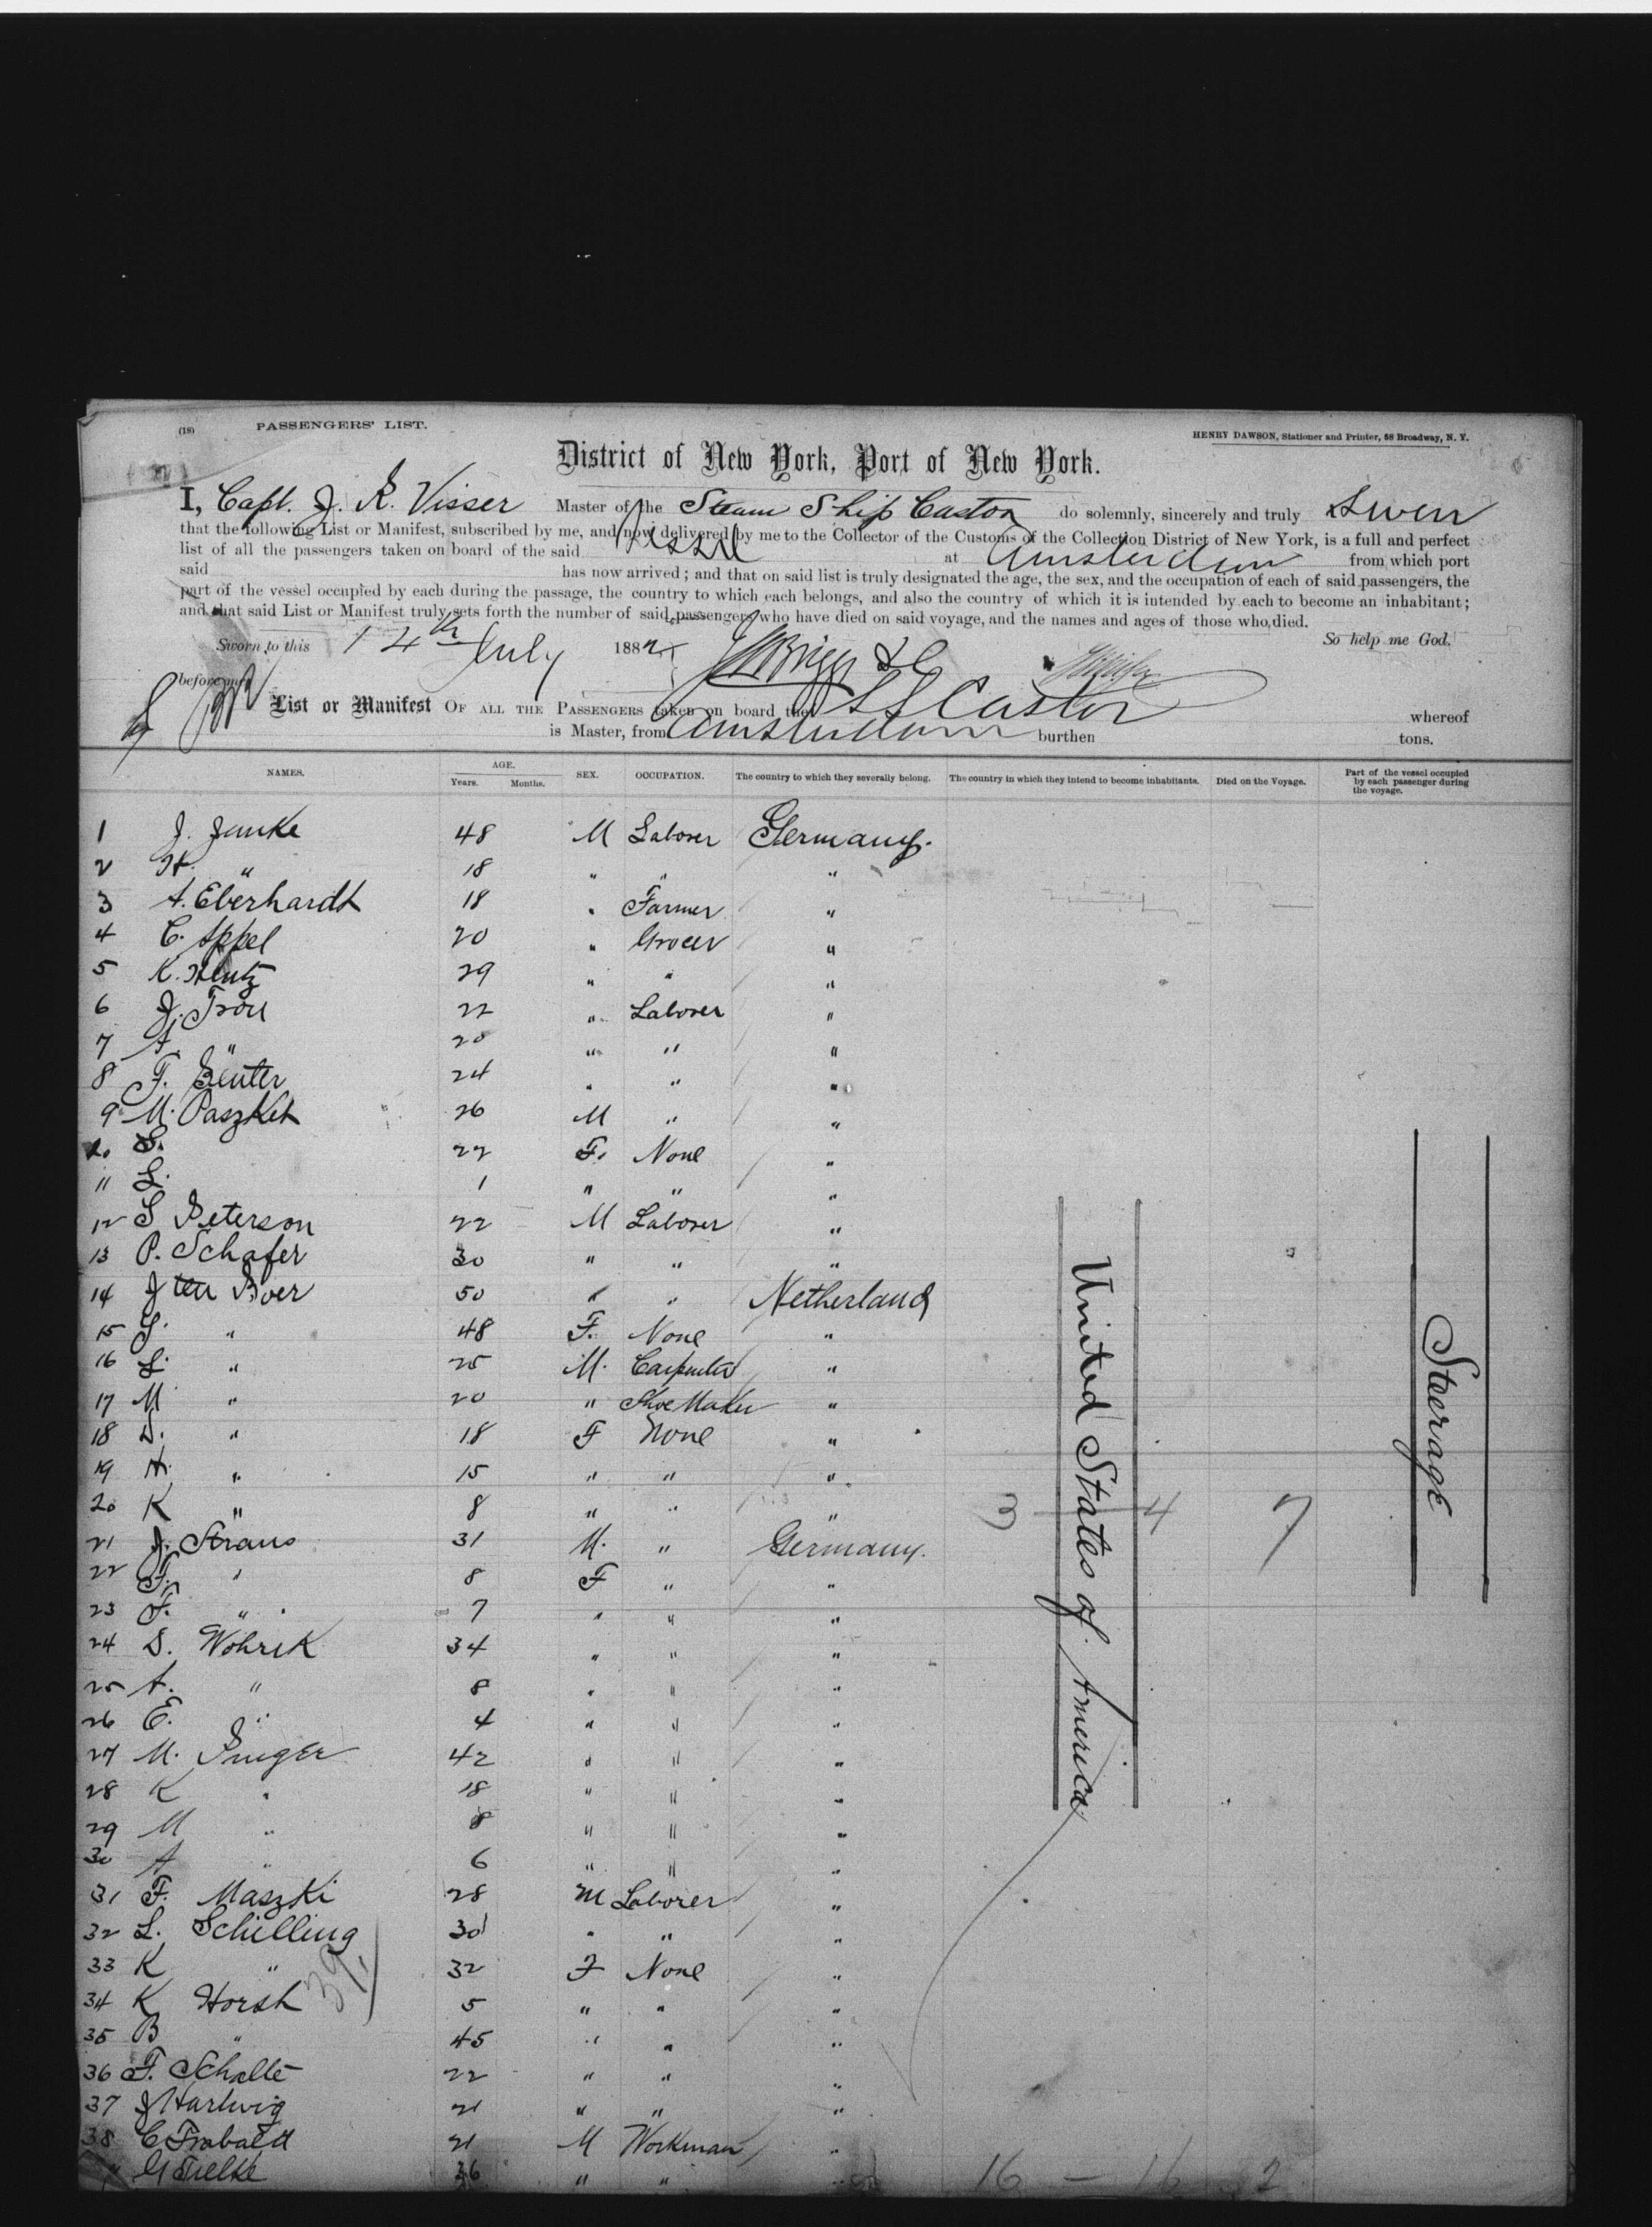 (18) PASSENGERS' LIST.
HENRY DAWSON, Stationer and Printer, 58 Broadway, N. Y.
District of New York, Port of New York.
I, Capt. J. R. Visser Master of the Steam Ship Castor do solemnly, sincerely and truly Swear
that the following List or Manifest, subscribed by me, and now delivered by me to the Collector of the Customs of the Collection District of New York, is a full and perfect
list of all the passengers taken on board of the said Vessel at Amsterdam from which port
said has now arrived; and that on said list is truly designated the age, the sex, and the occupation of each of said passengers, the
part of the vessel occupied by each during the passage, the country to which each belongs, and also the country of which it is intended by each to become an inhabitant;
and that said List or Manifest truly sets forth the number of said passengers who have died on said voyage, and the names and ages of those who died.
Sworn to this 14th July 1882 So help me God.
before me
List or Manifest OF ALL THE PASSENGERS taken on board the SS Castor whereof
is Master, from Amsterdam burthen tons.
NAMES. AGE. Years. Months. SEX. OCCUPATION. The country to which they severally belong. The country in which they intend to become inhabitants. Died on the Voyage. Part of the vessel occupied by each passenger during the voyage.
1 J. Janke 48 M Laborer Germany.
2 H. " 18 " " "
3 A. Eberhardt 18 " Farmer "
4 C. Appel 20 " Grocer "
5 K. Hentz 29 " " "
6 J. Trou 22 " Laborer "
7 A. " 20 " " "
8 F. Beuter 24 " " "
9 M. Paszket 26 M " "
10 S. 22 F. None "
11 L. 1 " " "
12 S Peterson 22 M Laborer "
13 P. Schafer 30 " " "
14 J ten Boer 50 " " Netherland
15 G. " 48 F. None "
16 L. " 25 M. Carpenter "
17 M " 20 " Shoe Maker "
18 D. " 18 F None "
19 H. " 15 " " "
20 K " 8 " " "
21 J. Straus 31 M. " Germany.
22 F. " 8 F " "
23 F. " 7 " " "
24 S. Wohrik 34 " " "
25 A. " 8 " " "
26 E. " 4 " " "
27 M. Singer 42 " " "
28 K " 18 " " "
29 M " 8 " " "
30 A " 6 " " "
31 F. Maszki 28 M Laborer "
32 L. Schilling 30 " " "
33 K " 32 F None "
34 K Horsh 5 " " "
35 B " 45 " " "
36 F. Schalte 22 " " "
37 J Hartwig 21 " " "
38 C Trabald 21 M Workman "
G Tielke 36 " " "
United States of America
Steerage
3 4 7
39
16 — 16 2